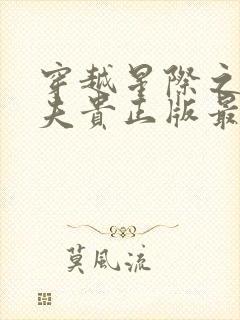 穿越星际之
夫贵正版最
莫風流